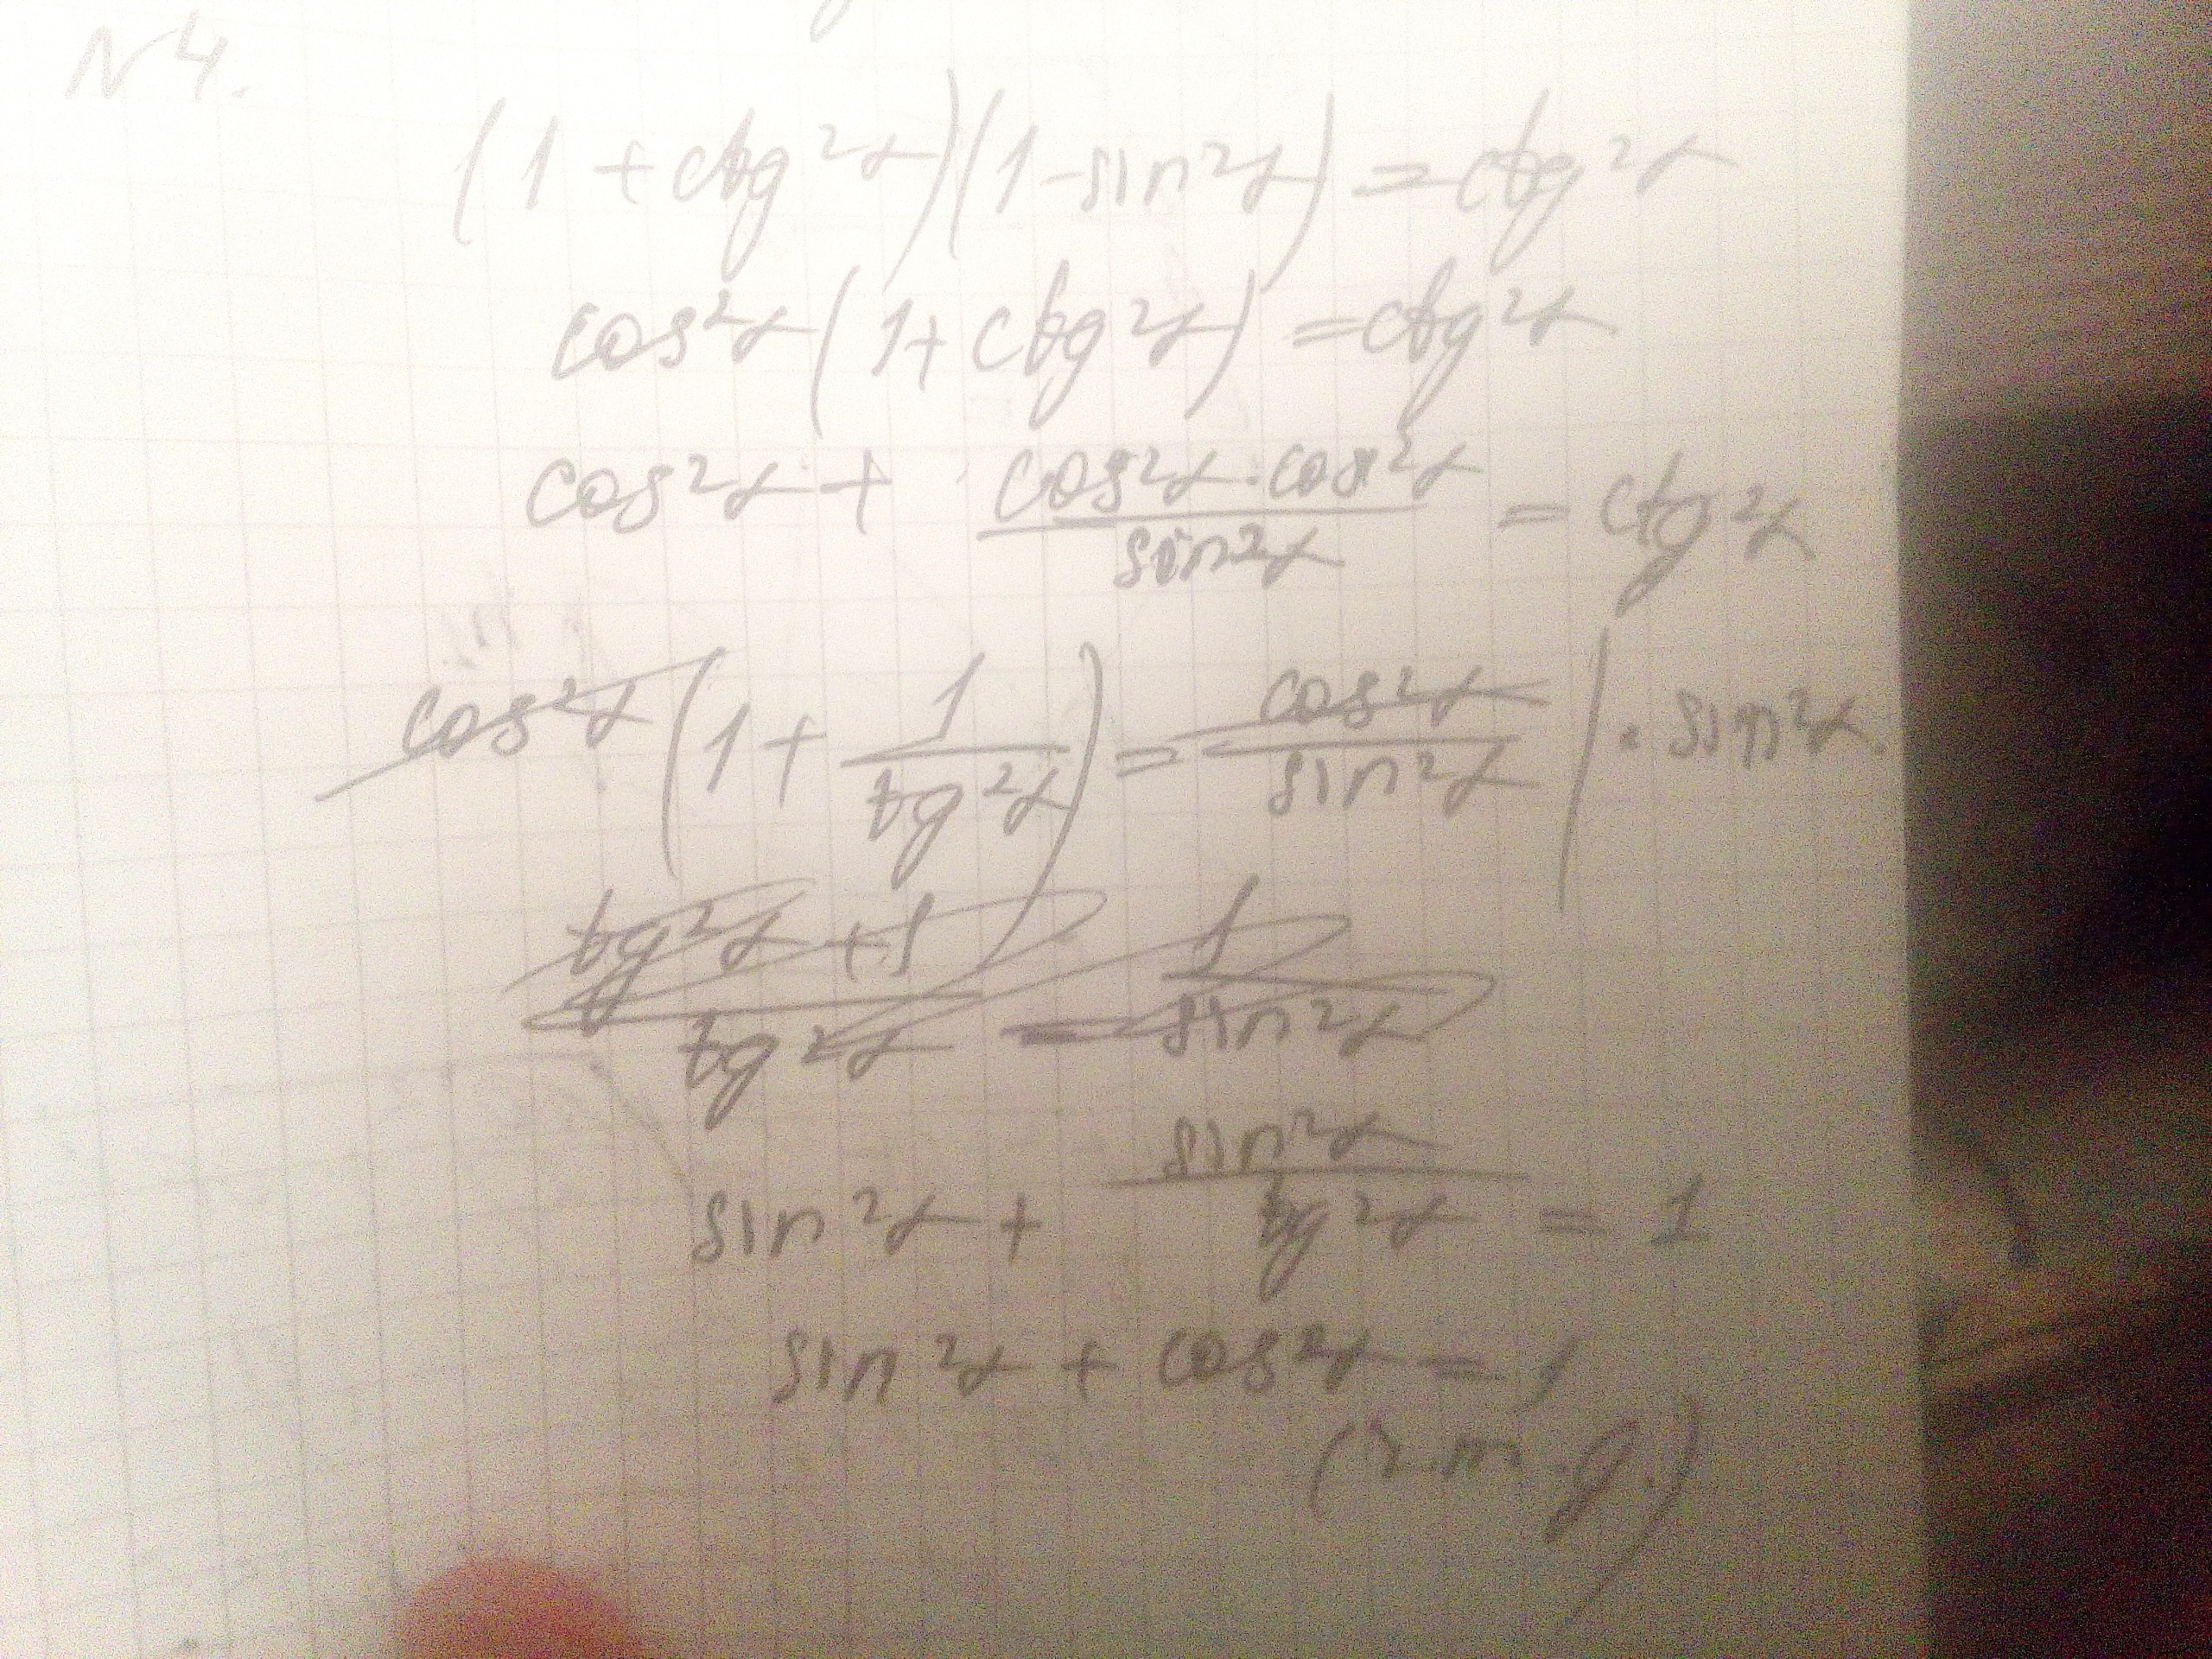 N4.
(1 + ctg²α)(1 - sin²α) = ctg²α
cos²α(1 + ctg²α) = ctg²α
cos²α + (cos²α · cos²α)/(sin²α) = ctg²α
cos²α(1 + 1/(tg²α)) = cos²α/sin²α | · sin²α
(tg²α + 1)/(tg²α) = 1/(sin²α)
sin²α + sin²α/tg²α = 1
sin²α + cos²α = 1
(ч.т.д.)